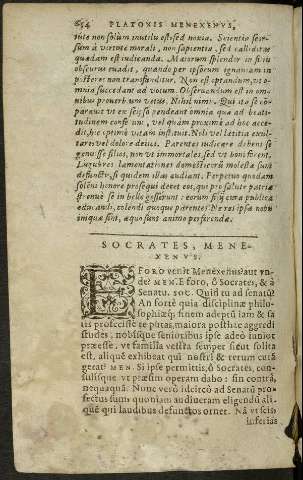 654 PLATONIS MENEXENVS,
tute non solùm inutilis est, sed noxia. Scientia seiun-
cta à virtute morali, non sapientia, sed calliditas
quædam est iudicanda. Maiorum splendor in filiis
obscurus euadit, quando per ipsorum ignauiam in
posteros non transfunditur. Non est optandum, vt o-
mnia succedant ad votum. Obseruandum est in om-
nibus prouerbium vetus, Nihil nimis. Qui ita se cō-
parauit vt ex seipso pendeant omnia quæ ad beati-
tudinem conferunt, vel quàm proximè ad hoc acce-
dit, hic optimè vitam instituit. Noli vel lætitia exul-
tare, vel dolore deiici. Parentes iudicare debent se
genuisse filios, non vt immortales, sed vt boni sient.
Lugubres lamentationes domesticorū molestæ sunt
defunctis, si quidem illas audiant. Perpetuo quodam
solēni honore prosequi decet eos, qui pro salute patriæ
strenuè se in bello gesserunt: eorum filij cura publica
educandi, colendi eorum parentes. Ne res ipsæ nobis
iniquæ sint, æquo sunt animo perferendæ.
SOCRATES, MENE-
XENVS.
E FORO venit Menexenus? aut vn-
de? MEN. E foro, ô Socrates, & à
Senatu. SOC. Quid tu ad senatū?
An fortè quia disciplinæ philo-
sophiæq; finem adeptū iam & sa-
tis profecisse te putas, maiora posthac aggredi
studes, nobisque senioribus ipse adeò iunior
præesse, vt familia vestra semper sicut solita
est, aliquē exhibeat qui nostrī & rerum curā
gerat? MEN. Si ipse permittis, ô Socrates, con-
sulisque vt præsim operam dabo: sin contrà,
nequaquā. Nunc verò idcirco ad Senatū pro-
fectus sum: quoniam audieram eligendū ali-
quē qui laudibus defunctos ornet. Nā vt scis
inferias